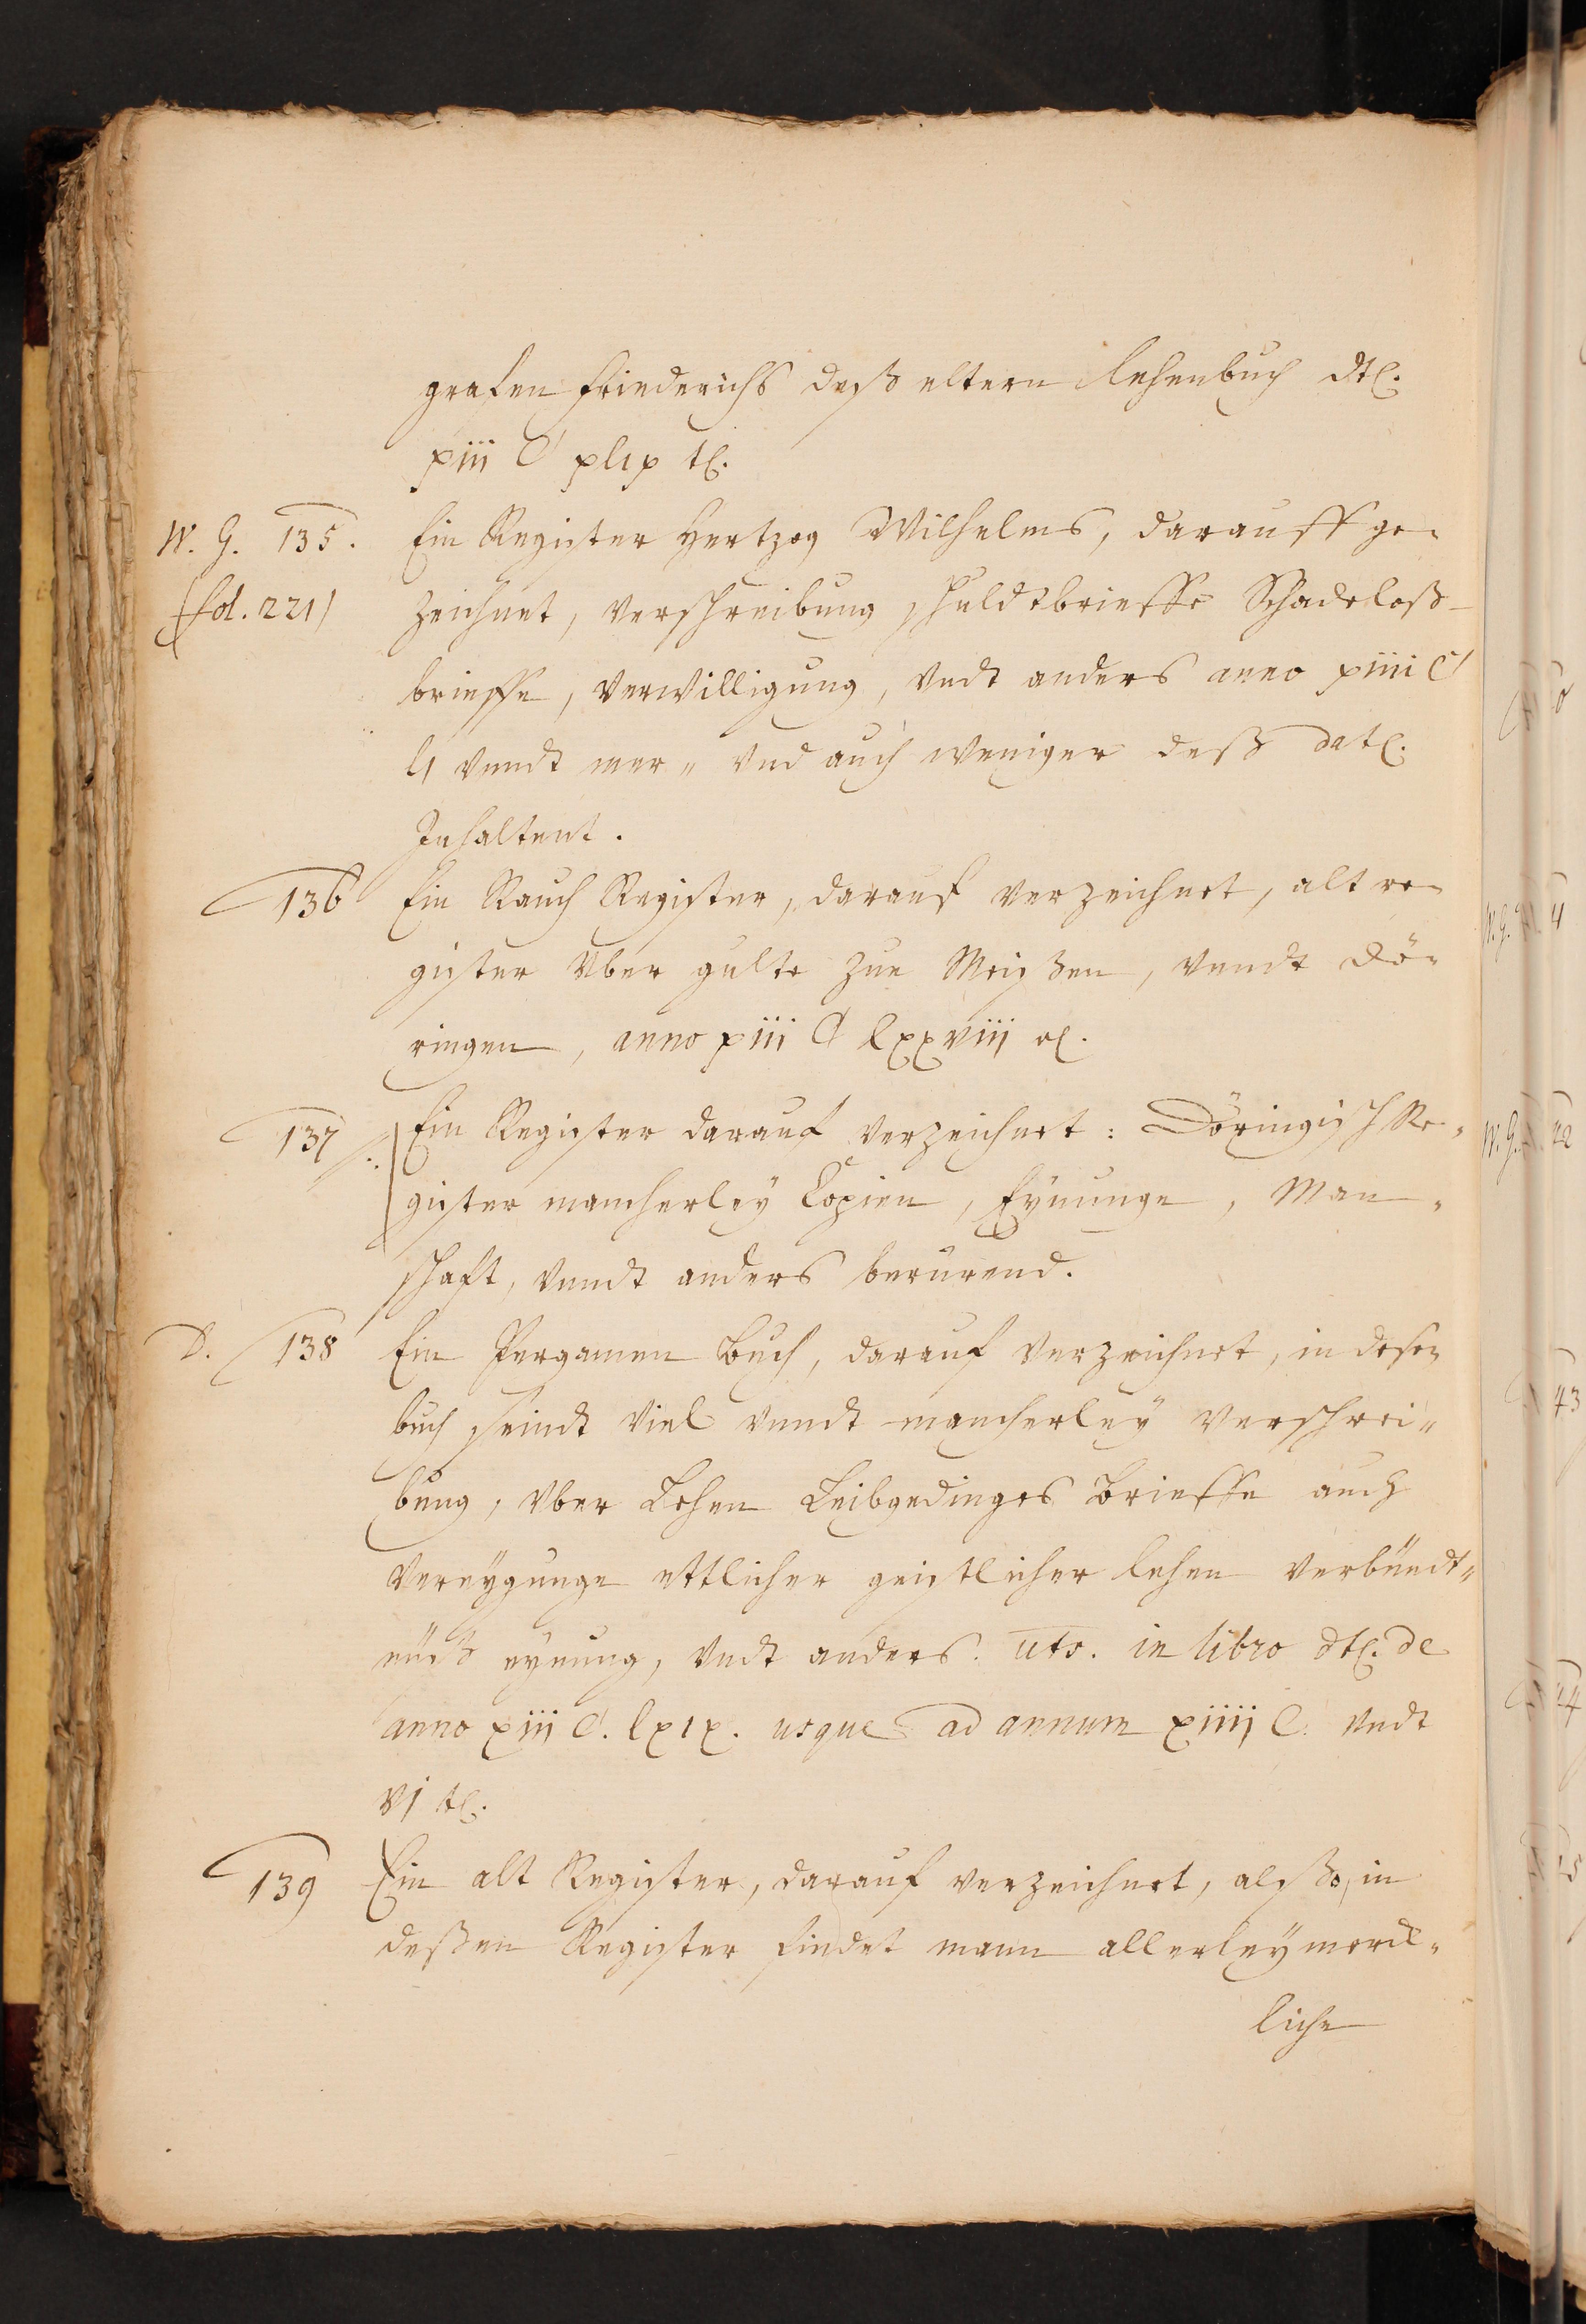 grafen friederichs deß eltern lehenbuch dtʒ.
xiii C xlix tʒ.
W. G. 135. Ein Register Hertzog Wilhelms, darauff ge-
fol. 221 zeichnet, verschreibung, schuldtbrieffe Schadeloß-
brieffe, verwilligung, vndt anders anno xiiii C
li vnndt mer „ vnd auch weniger deß datʒ.
Inhaltent.
136 Ein Rauch Register, darauf verzeichnet, alt re-
gister vber gulte zue Meißen, vnndt Dö-
ringen, anno xiii C lxxviii
137 Ein Register darauf verzeichnet: Döringisch Re-
gister mancherley Copien, Eynunge, Man-
schaft, vnndt anders berürend.
D. 138 Ein Pergamen Buch, darauf verzeichnet, in desen
buch seindt viel vnndt mancherley verschrei-
bung, vber Lehen Leibgedinges Brieffe auch
vereygunge ettlicher geistlicher lehen verbündt-
nüß eynung, vndt anders. uts. in libro dtʒ. de
anno xiii C. lxix. usque ad annum xiiii C. vndt
vi tʒ.
139 Ein alt Register, darauf verzeichnet, alßo, in
deßen Register findet mann allerley merck-
liche